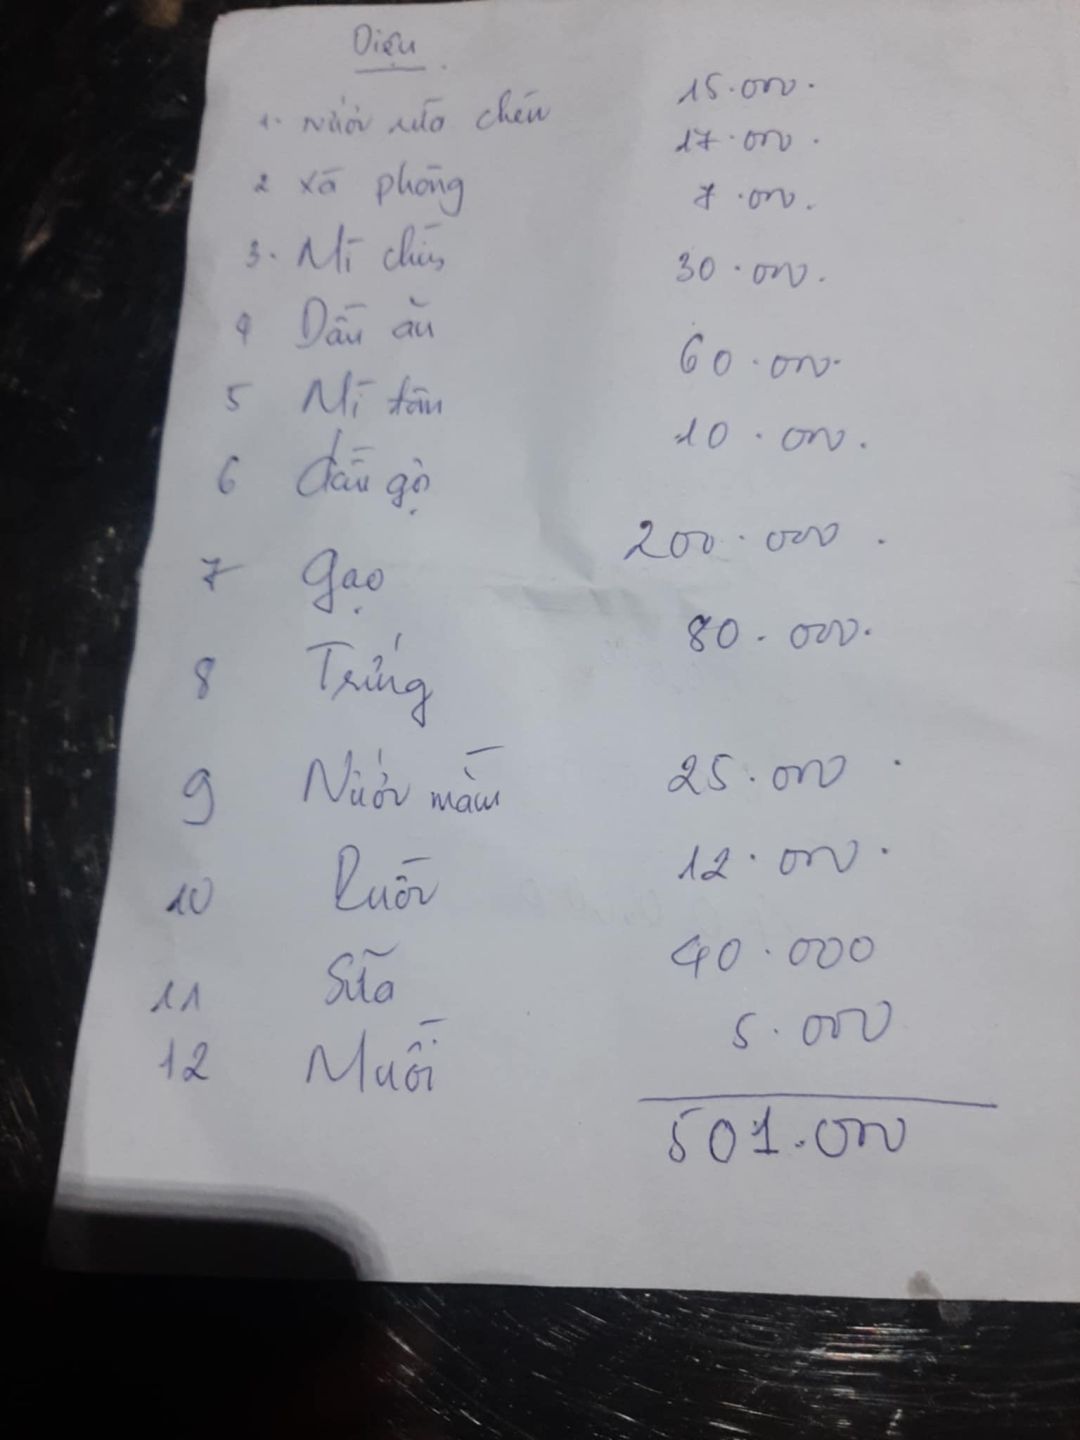 Diệu
1. Nước rửa chén 15.000.
2 Xà phòng 17.000.
3. Mì chín 7.000.
4 Dầu ăn 30.000.
5 Mì tôm 60.000.
6 dầu gội 10.000.
7 Gạo 200.000.
8 Trứng 80.000.
9 Nước mắm 25.000.
10 12.000.
11 Sữa 40.000
12 Muối 5.000
501.000